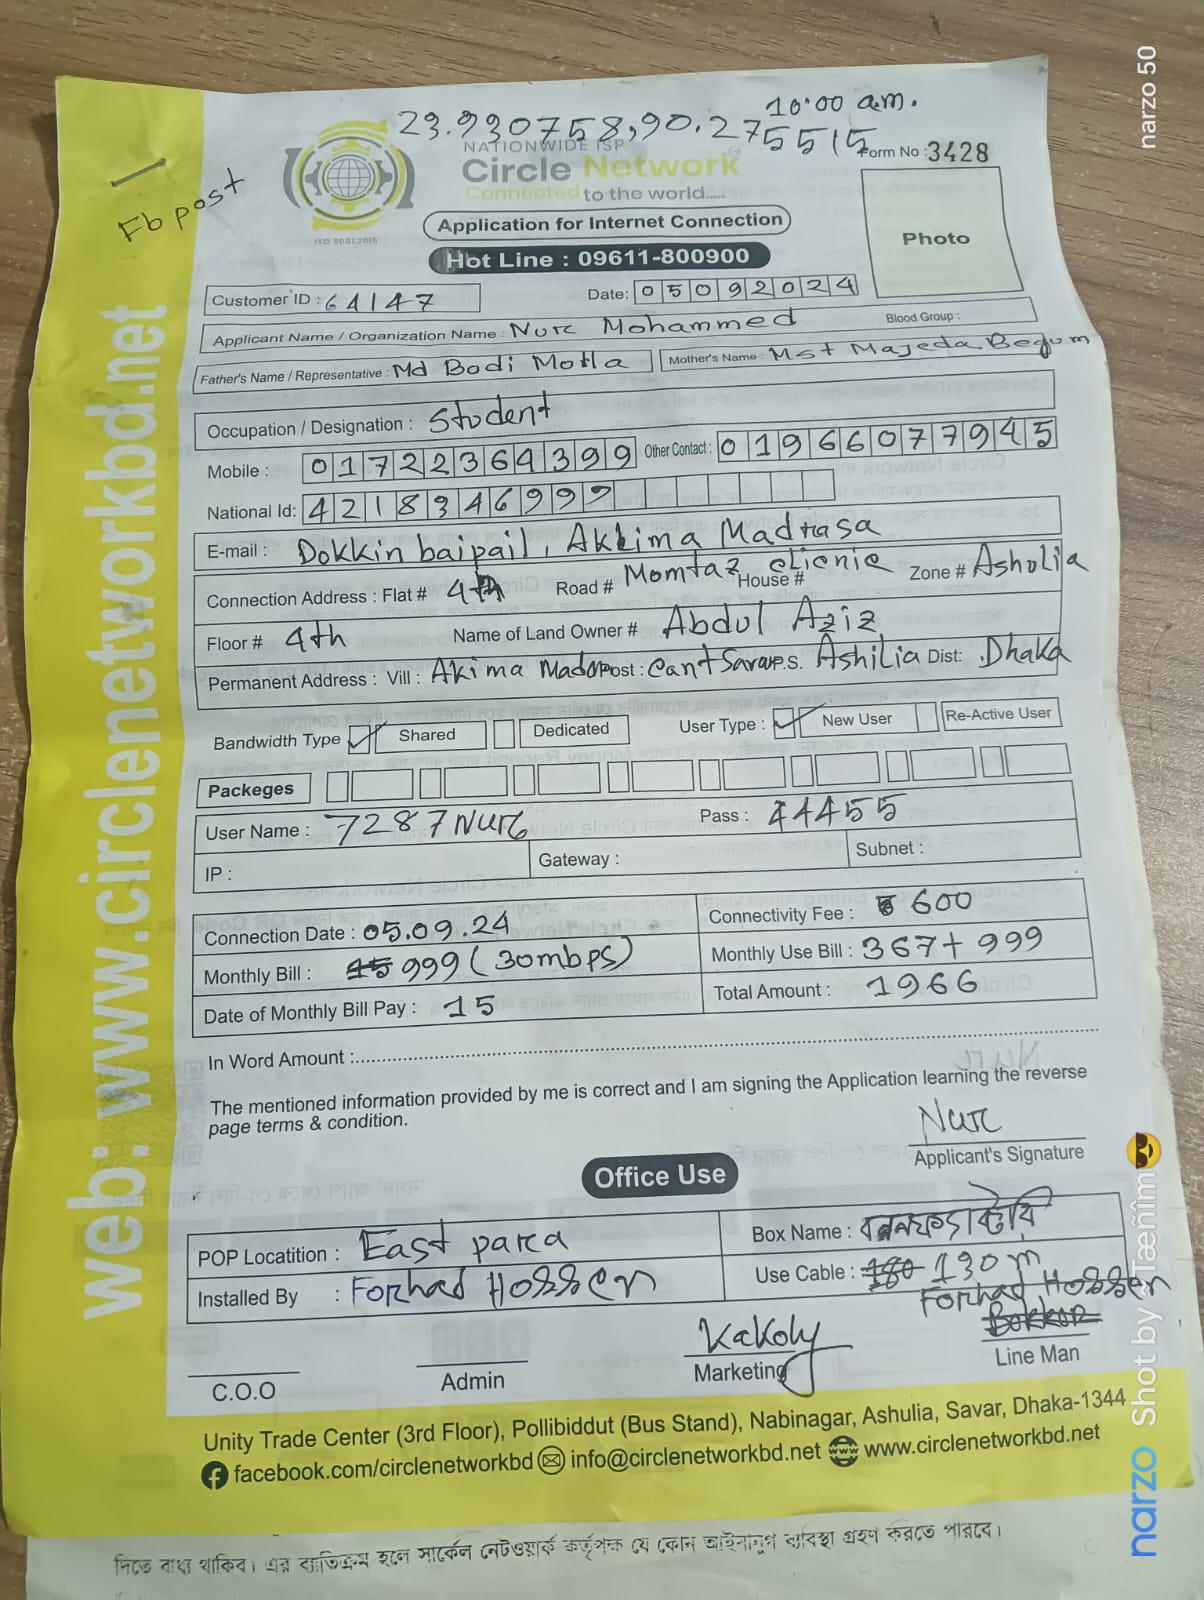 10:00 a.m.
23.930758,90.275515
Fb post
NATIONWIDE ISP
Circle Network
Connected to the world.....
ISO 9001:2015
Form No : 3428
Application for Internet Connection
Hot Line : 09611-800900
Photo
Customer ID : 64147
Date: 05092024
Applicant Name / Organization Name : Nur Mohammed
Blood Group :
Father's Name / Representative : Md Bodi Molla
Mother's Name : Mst Majeda Begum
Occupation / Designation : Student
Mobile : 01722364399 Other Contact : 01966077945
National Id: 4218346999
E-mail : Dokkin baipail, Akkima Madrasa
Connection Address : Flat # 4th Road # Momtaz clienic House # Zone # Asholia
Floor # 4th Name of Land Owner # Abdul Aziz
Permanent Address : Vill : Akima Mado Post : Cant Savar P.S. Ashilia Dist: Dhaka
Bandwidth Type Shared Dedicated User Type : New User Re-Active User
Packeges
User Name : 7287Nur Pass : 44455
IP : Gateway : Subnet :
Connection Date : 05.09.24 Connectivity Fee : 600
Monthly Bill : 999 (30mbps) Monthly Use Bill : 367+999
Date of Monthly Bill Pay : 15 Total Amount : 1966
In Word Amount :
The mentioned information provided by me is correct and I am signing the Application learning the reverse
page terms & condition.
Nur
Applicant's Signature
Office Use
POP Locatition : East para Box Name :
Installed By : Forhad Hossen Use Cable : 180 130 m
Forhad Hossen
Bokkor
Kakoly
C.O.O Admin Marketing Line Man
Unity Trade Center (3rd Floor), Pollibiddut (Bus Stand), Nabinagar, Ashulia, Savar, Dhaka-1344
facebook.com/circlenetworkbd info@circlenetworkbd.net www.circlenetworkbd.net
web: www.circlenetworkbd.net
দিতে বাধ্য থাকিব। এর ব্যতিক্রম হলে সার্কেল নেটওয়ার্ক কর্তৃপক্ষ যে কোন আইনানুগ ব্যবস্থা গ্রহণ করতে পারবে।
narzo 50
narzo Shot by Tæñîm😎